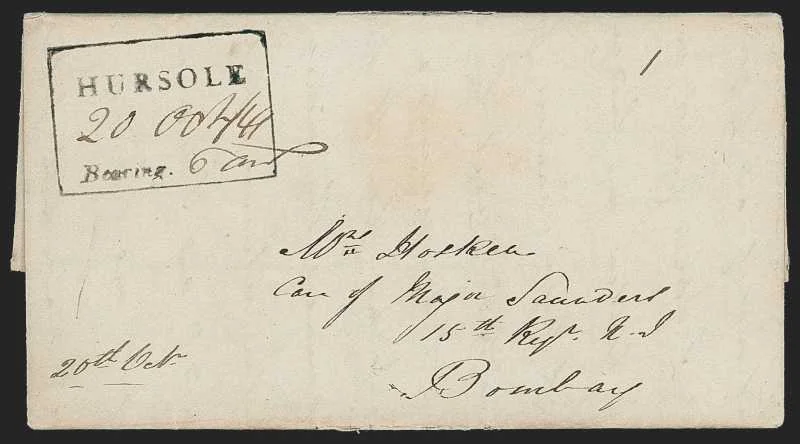 HURSOLE
20 Oct/41
Bearing. 6 ans
1
Mrs Hosken
Care of Major Saunders
15th Regt. N.I
Bombay
20th Octr